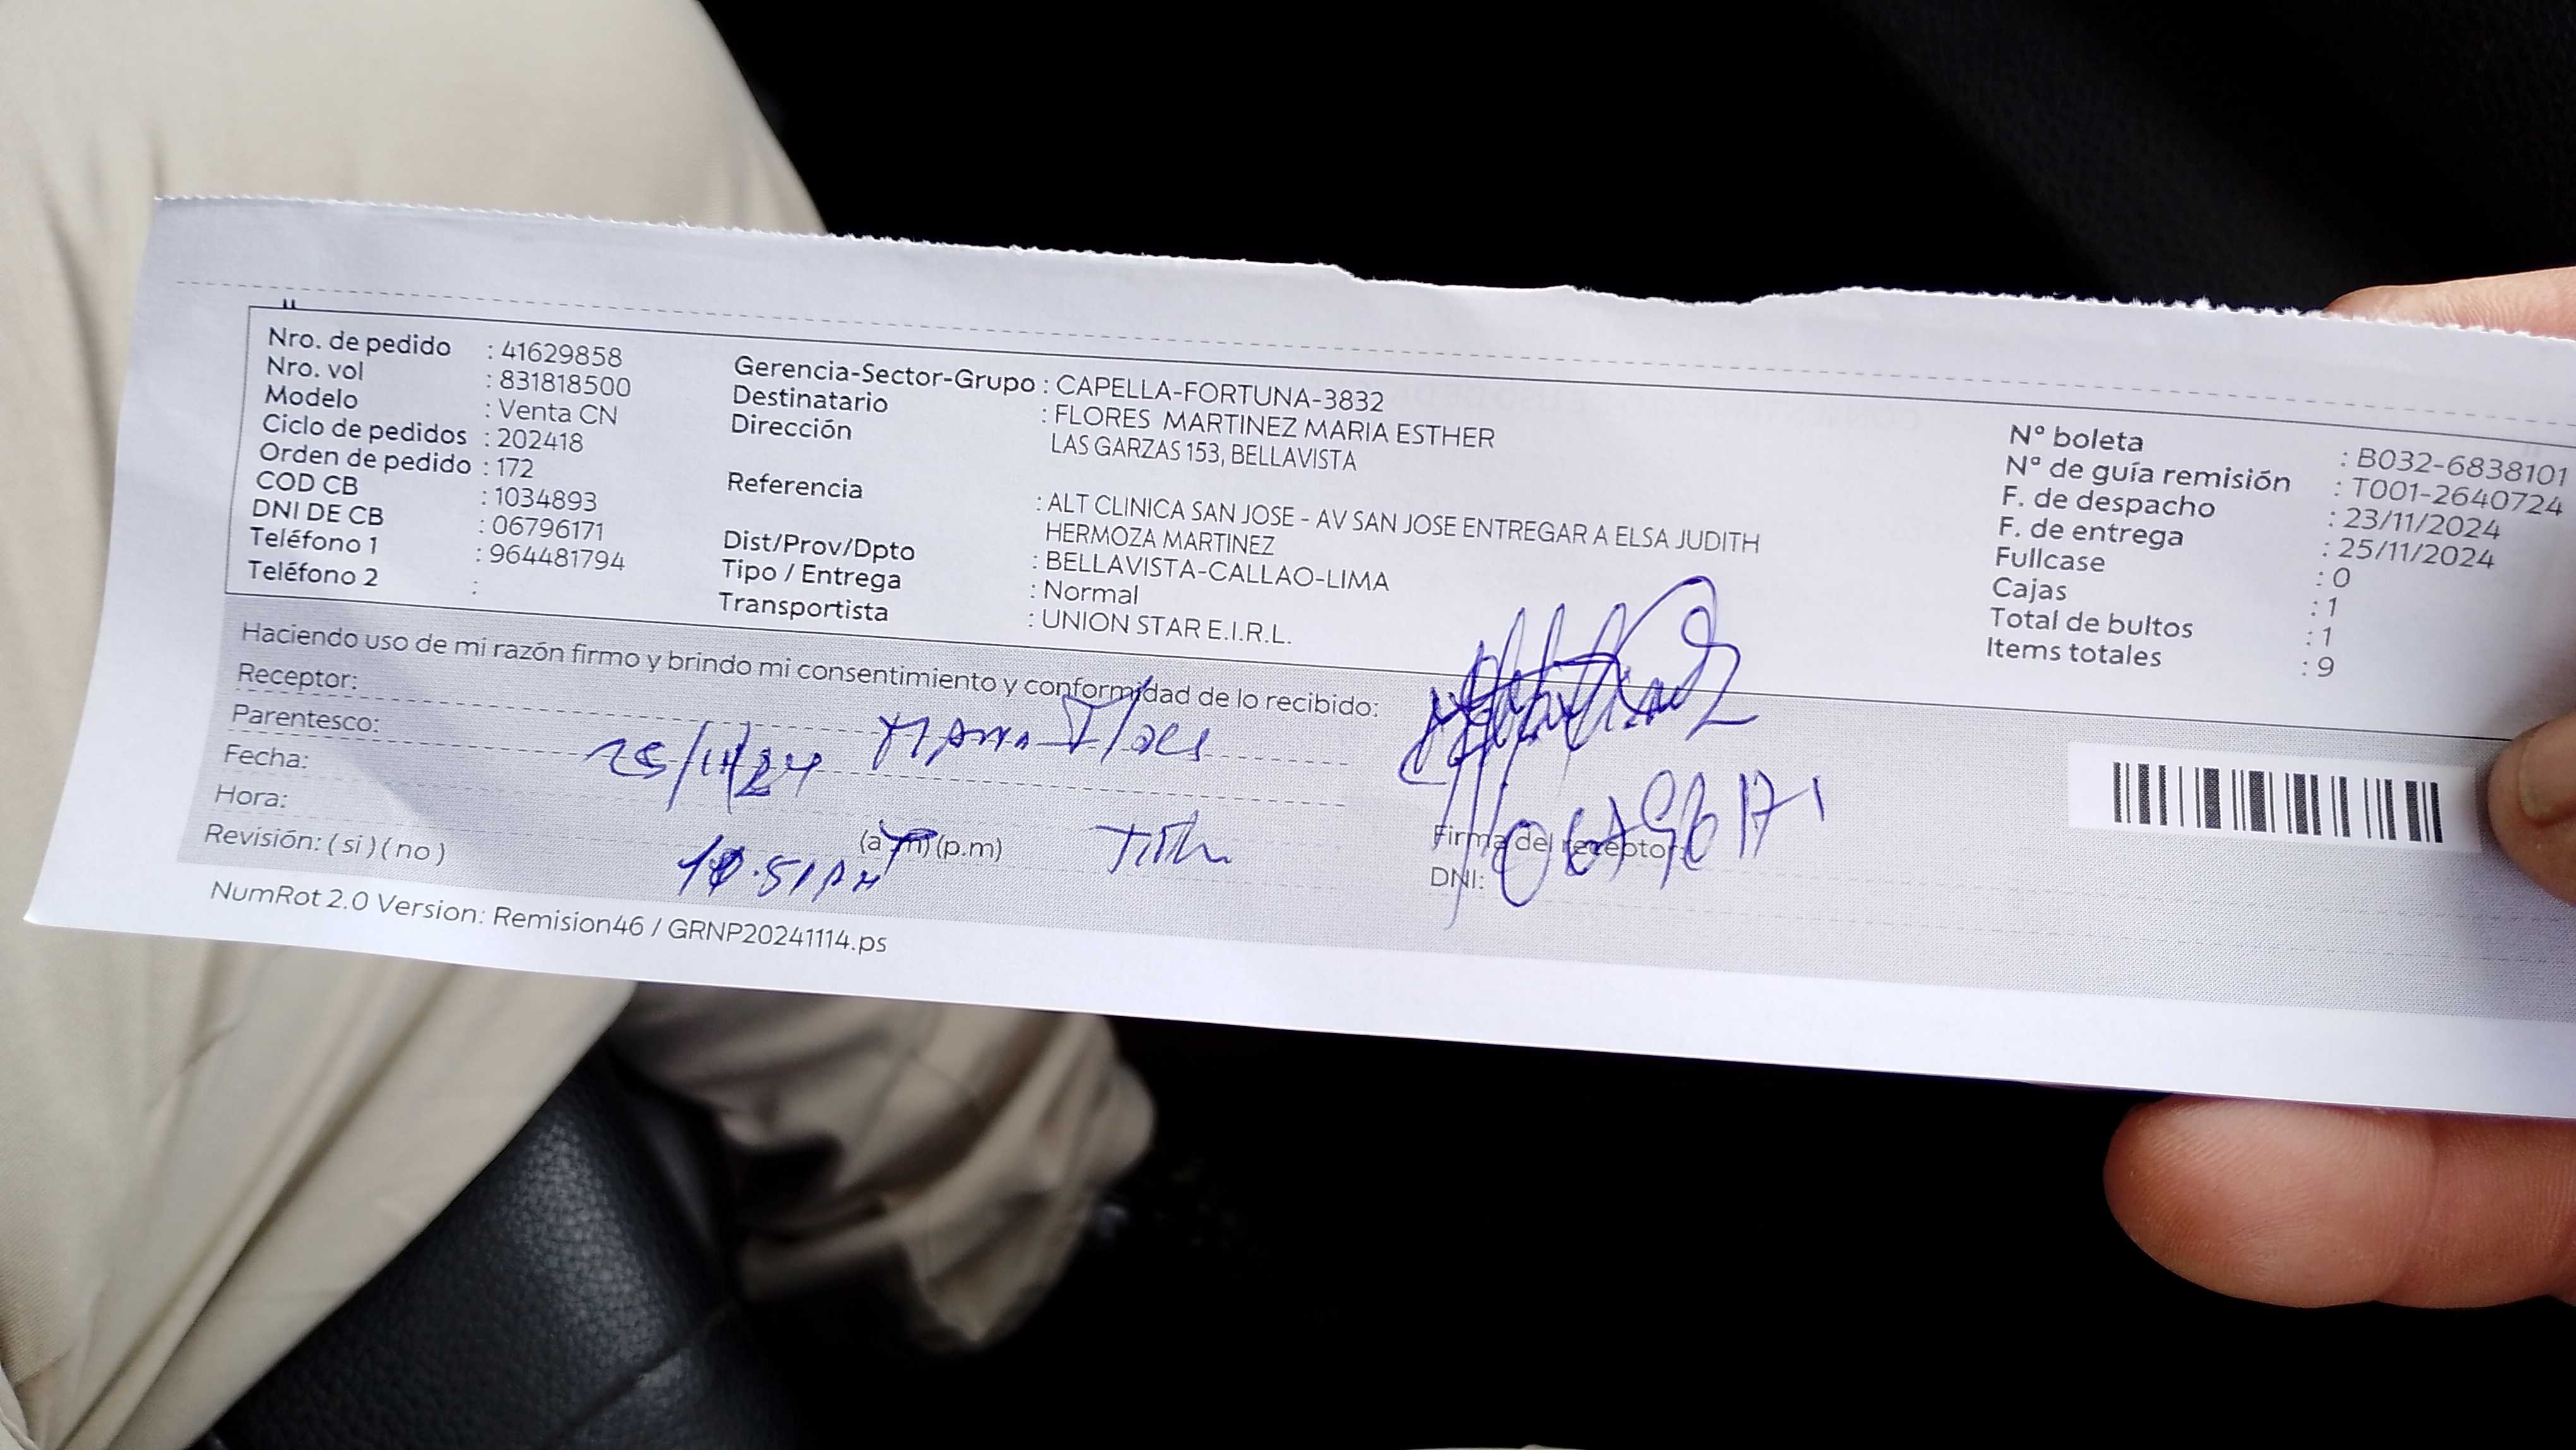 Nro. de pedido : 41629858
Nro. vol : 831818500
Modelo : Venta CN
Ciclo de pedidos : 202418
Orden de pedido : 172
COD CB : 1034893
DNI DE CB : 06796171
Teléfono 1 : 964481794
Teléfono 2 :
Gerencia-Sector-Grupo : CAPELLA-FORTUNA-3832
Destinatario : FLORES MARTINEZ MARIA ESTHER
Dirección LAS GARZAS 153, BELLAVISTA
Referencia : ALT CLINICA SAN JOSE - AV SAN JOSE ENTREGAR A ELSA JUDITH
HERMOZA MARTINEZ
Dist/Prov/Dpto : BELLAVISTA-CALLAO-LIMA
Tipo / Entrega : Normal
Transportista : UNION STAR E.I.R.L.
Nº boleta : B032-6838101
Nº de guía remisión : T001-2640724
F. de despacho : 23/11/2024
F. de entrega : 25/11/2024
Fullcase : 0
Cajas : 1
Total de bultos : 1
Items totales : 9
Haciendo uso de mi razón firmo y brindo mi consentimiento y conformidad de lo recibido:
Receptor:
Parentesco: Flores
Fecha: 25/11/24
Hora: (a.m) (p.m)
Revisión: ( si ) ( no ) 10:51 AM
Firma del receptor:
DNI: 06796171
NumRot 2.0 Version: Remision46 / GRNP20241114.ps